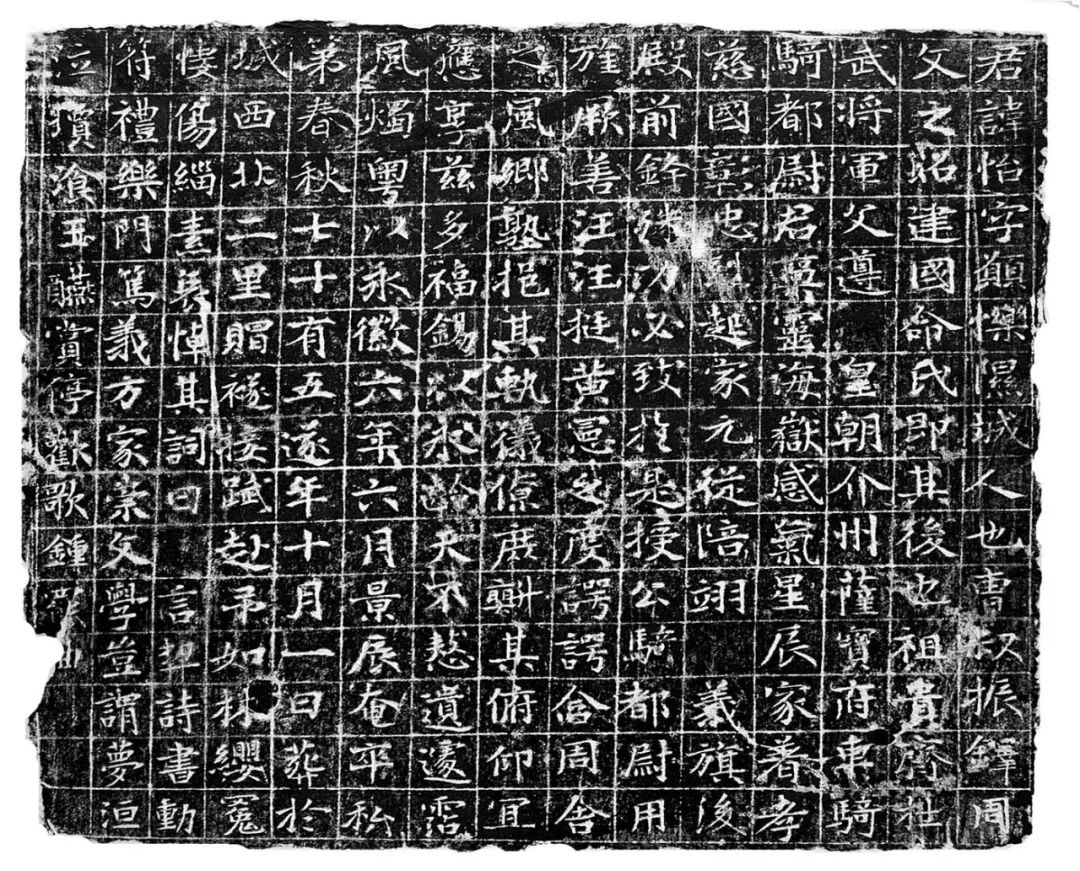 君諱怡字願隰城人也曹叔振鐸周
文之昭建國命氏即其後也祖貴齊壯
武將軍父遵皇朝介州薩寶府車騎
騎都尉君稟靈海嶽感氣星辰家著孝
慈國彰忠烈起家元從陪翊義旗後
殿前鋒殊功必致於是授公騎都尉用
旌厥善汪汪挺黃憲之度諤諤含周舍
之風鄉塾挹其軌儀僚庶斟其俯仰宜
應享茲多福錫以永齡天不憗遺遽霑
風燭粵以永徽六年六月景辰奄卒私
第春秋七十有五遂年十月一日葬於
城西北二里賵襚接跡赴弔如林纓冕
悽傷緇素哀悼其詞曰言想詩書動
符禮樂門篤義方家崇文學豈謂夢洹
泣瓊湌玉醼賞停歡歌鍾輟曲